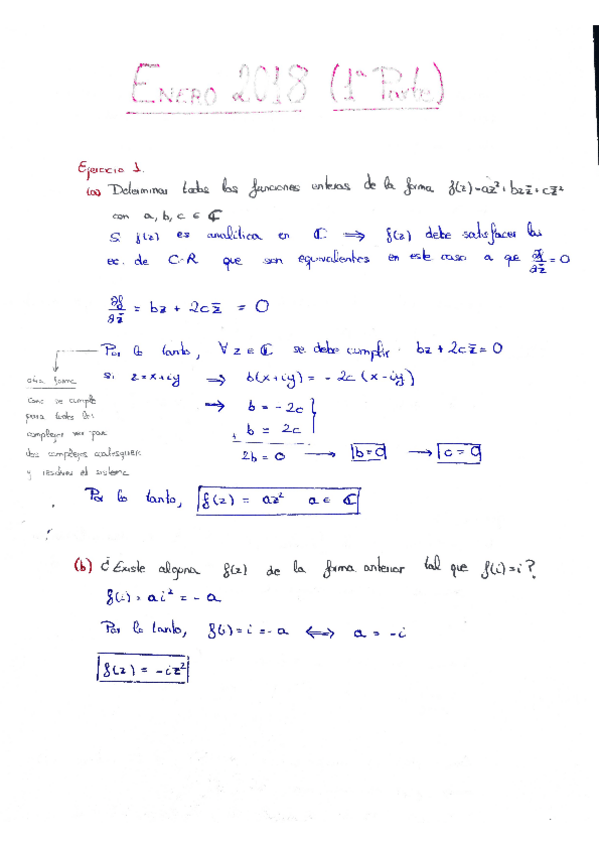 ENERO 2018 (1ª Parte)
Ejercicio 1.
(a) Determinar todas las funciones enteras de la forma f(z)=az²+bzz̄+cz̄²
con a, b, c ∈ ℂ
Si f(z) es analítica en ℂ ⟹ f(z) debe satisfacer las
ec. de C-R que son equivalentes en este caso a que ∂f/∂z̄ = 0
∂f/∂z̄ = bz + 2cz̄ = 0
Por lo tanto, ∀ z ∈ ℂ se debe cumplir bz + 2cz̄ = 0
si z = x+iy ⟹ b(x+iy) = -2c(x-iy)
⟹ b = -2c
b = 2c
2b = 0 ⟶ b=0 ⟶ c=0
otra forma
como se cumple
para todos los
complejos
dos complejos cualesquiera
y resolver el sistema
Por lo tanto, f(z) = az² a ∈ ℂ
(b) ¿Existe alguna f(z) de la forma anterior tal que f(i)=i?
f(i) = ai² = -a
Por lo tanto, f(i)=i=-a ⟺ a = -i
f(z) = -iz²